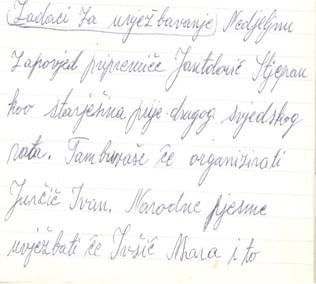 (Zadaci za uvježbavanje) Nedjeljnu
zapovjed pripremiće Jantolović Stjepan
kao starješina prije drugog svjedskog
rata. Tamburaše će organizirati
Jurčić Ivan. Narodne pjesme
uvježbati će Ivšić Mara i to